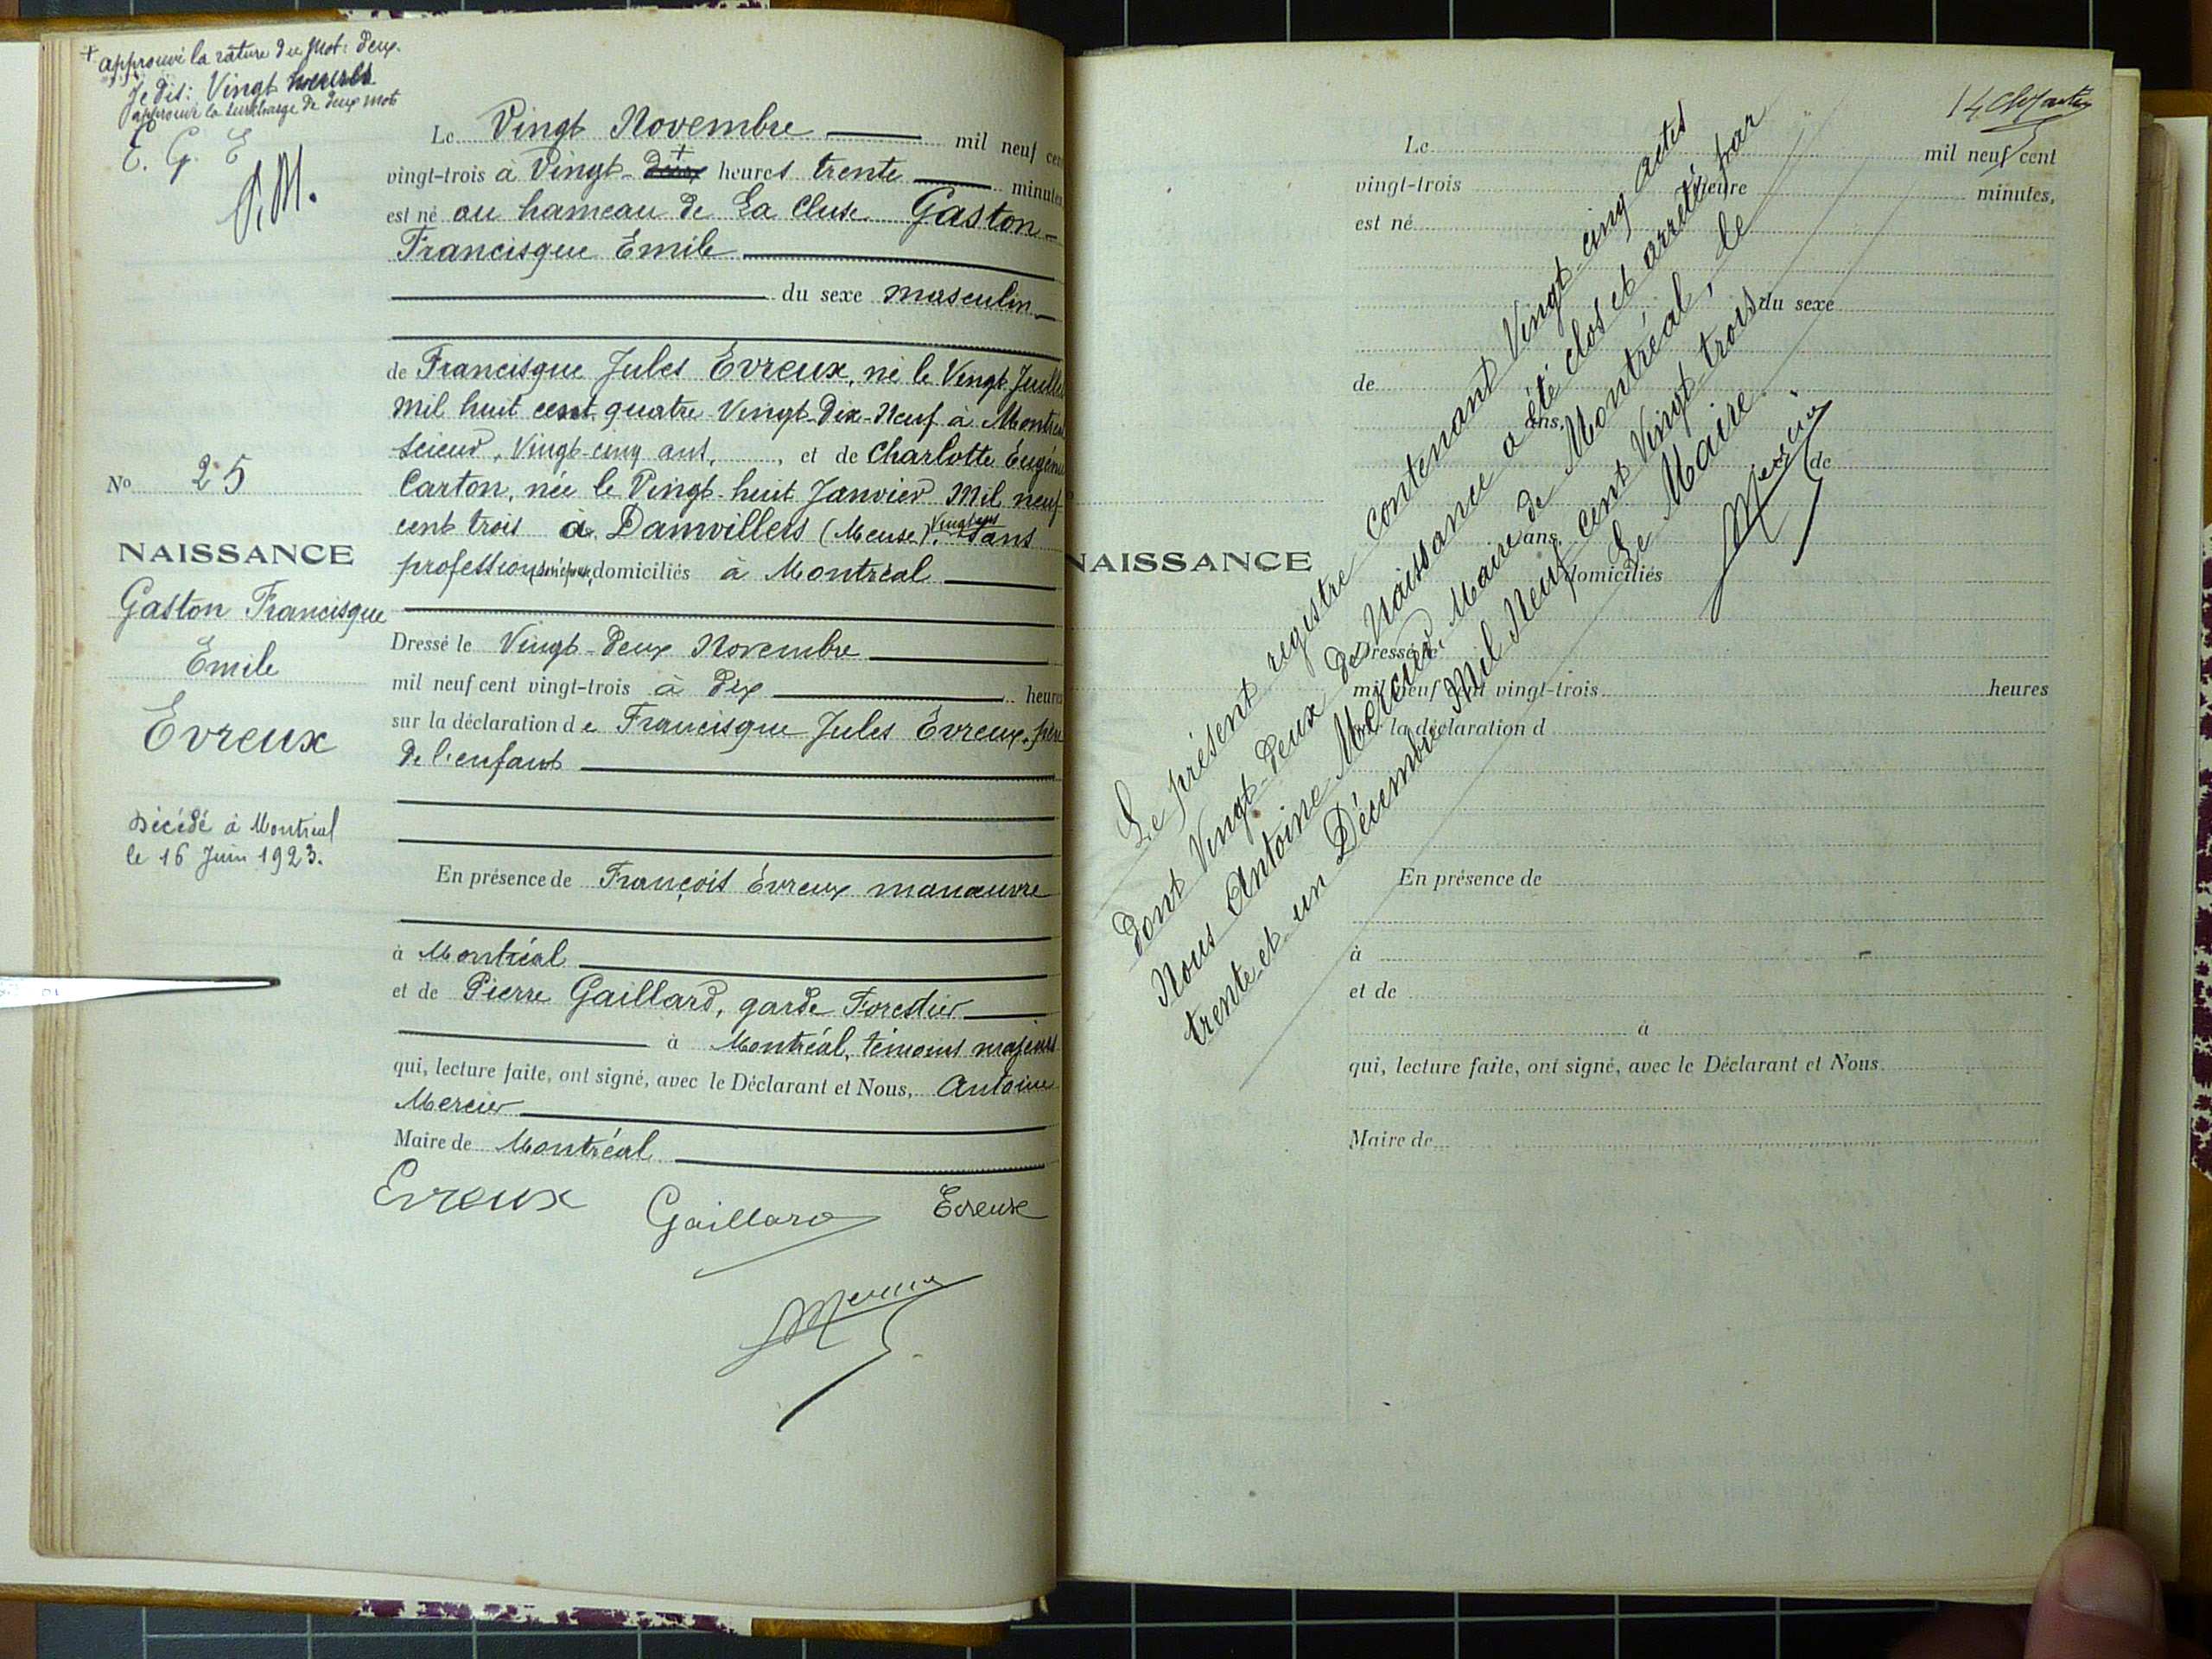 + approuvé la rature du mot: deux.
Je dis: Vingt heures
approuvé la surcharge de deux mots
E. G. E
A.M.
Le Vingt Novembre mil neuf cent
vingt-trois à Vingt-deux + heures trente minutes
est né au hameau de La Cluse Gaston-
Francisque Emile
du sexe masculin
de Francisque Jules Evreux, né le Vingt Juillet
mil huit cent quatre Vingt-Dix-Neuf à Montréal
scieur, Vingt-cinq ans, et de Charlotte Eugénie
Carton, née le Vingt-huit Janvier Mil neuf
cent trois à Damvillers (Meuse), Vingt ans
profession domiciliés à Montréal
Dressé le Vingt-deux Novembre
mil neuf cent vingt-trois à Dix heures
sur la déclaration de Francisque Jules Evreux, père
de l'enfant
En présence de François Évreux manœuvre
à Montréal
et de Pierre Gaillard, garde Forestier
à Montréal, témoins majeurs
qui, lecture faite, ont signé, avec le Déclarant et Nous, Antoine
Mercier
Maire de Montréal
Evreux Gaillard Evreux
Mercier
No 25
NAISSANCE
Gaston Francisque
Emile
Evreux
Décédé à Montréal
le 16 Juin 1923.
14
Le mil neuf cent
vingt-trois heure minutes,
est né
du sexe
de
ans,
de
ans
domiciliés
NAISSANCE
Dressé le
mil neuf cent vingt-trois heures
sur la déclaration d
En présence de
à
et de
à
qui, lecture faite, ont signé, avec le Déclarant et Nous
Maire de
Le présent registre contenant Vingt-cinq actes
dont Vingt-deux de Naissance a été clos et arrêté par
Nous Antoine Mercier, Maire de Montréal, le
trente et un Décembre Mil Neuf cent Vingt trois
Le Maire
Mercier